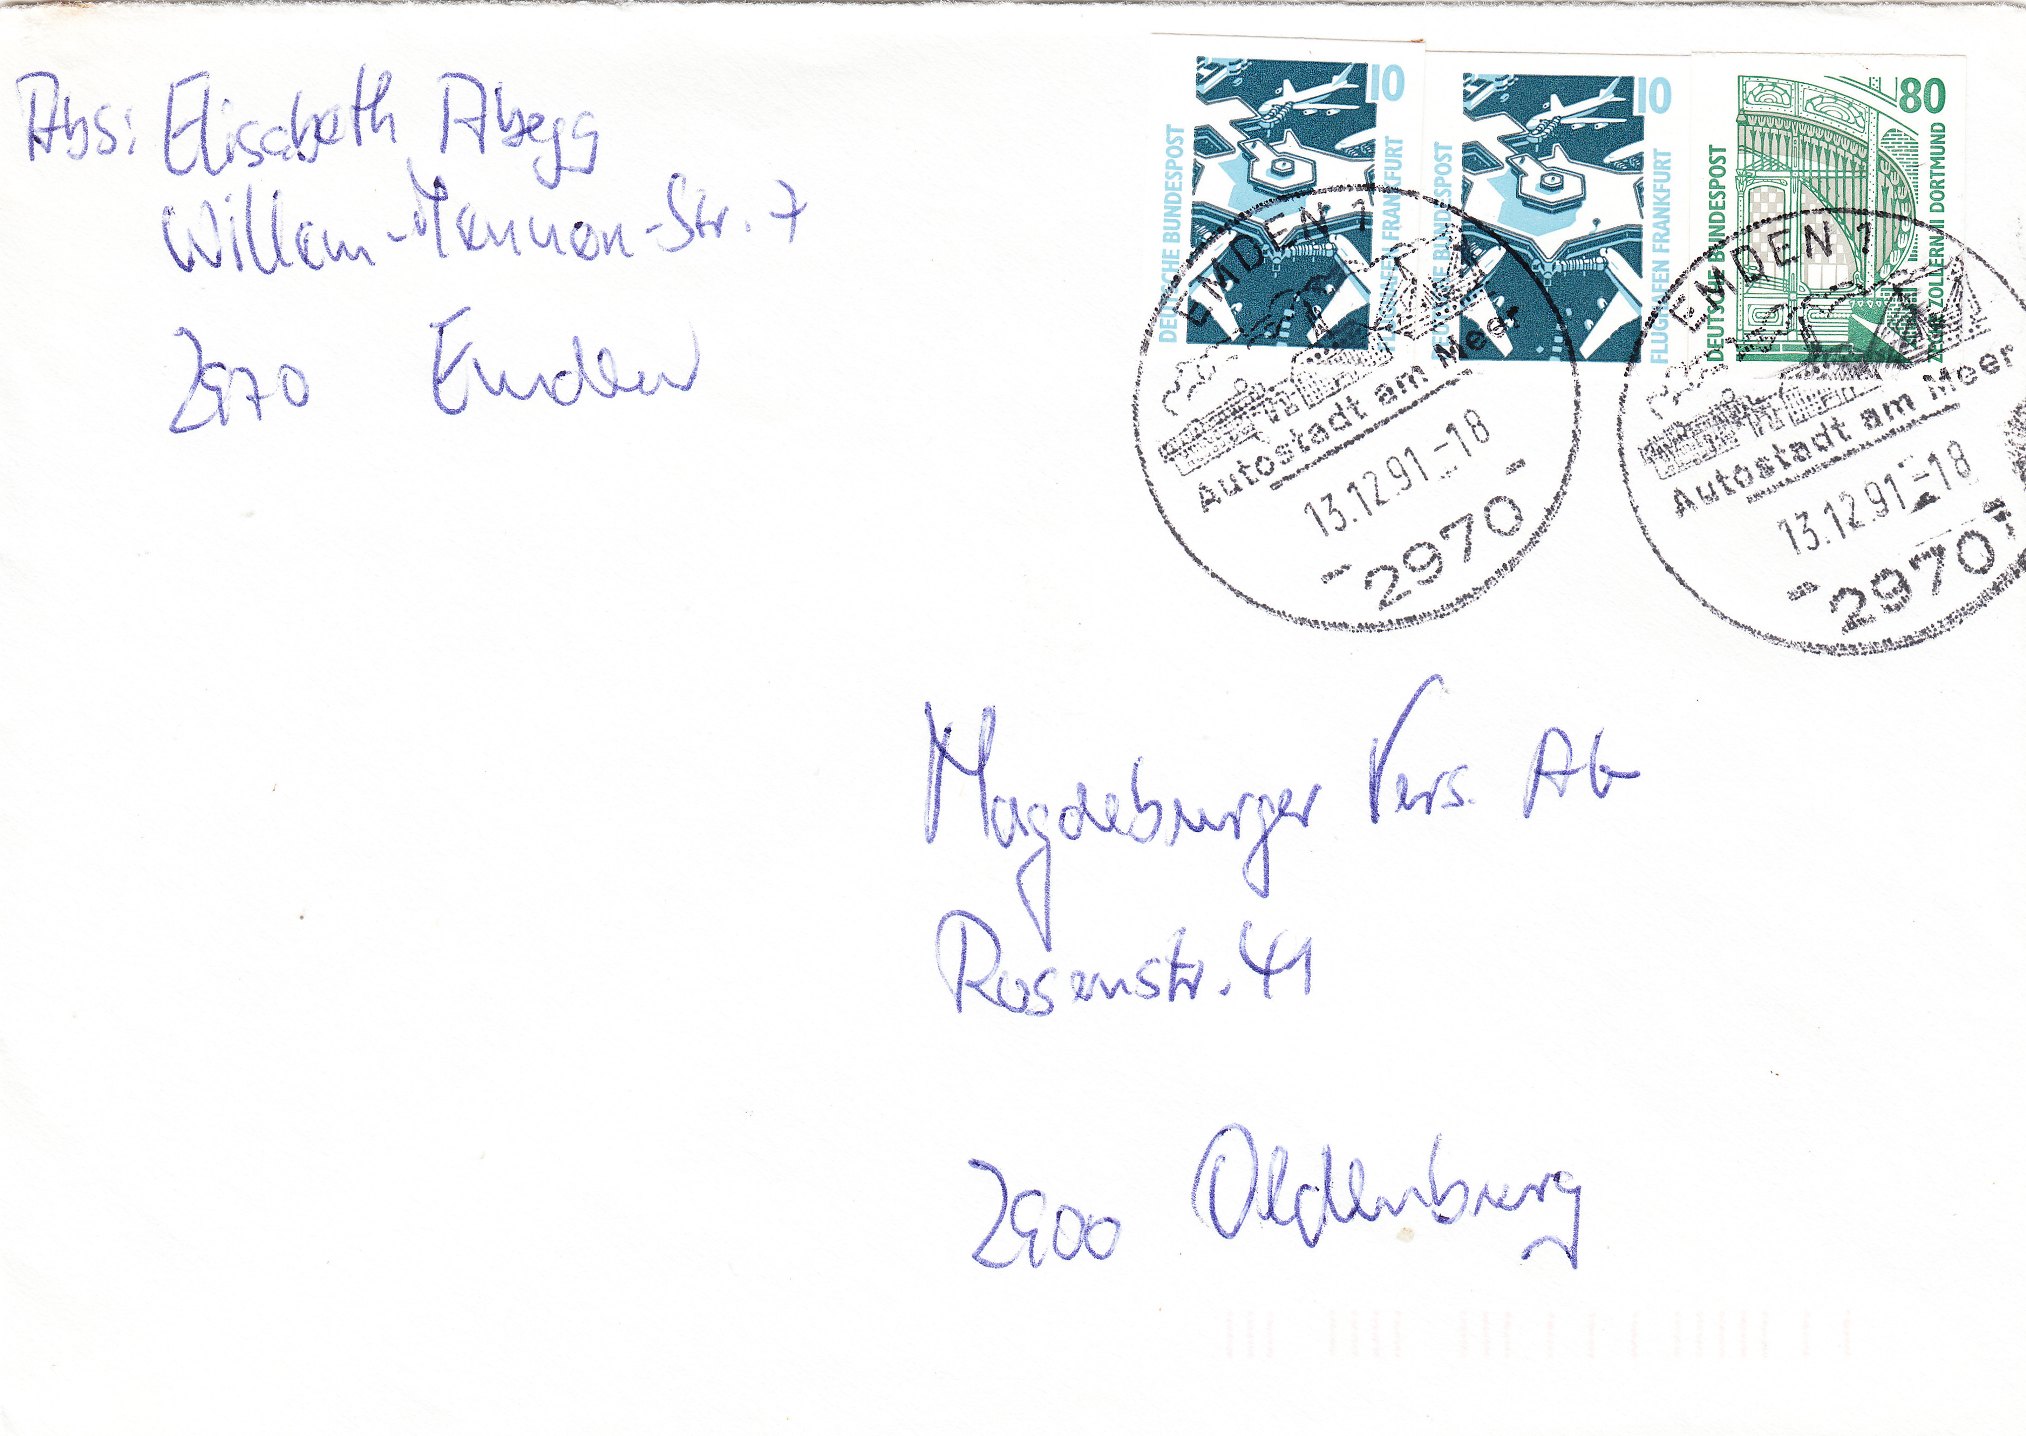 Abs: Elisabeth Abegg
Willem-Mannon-Str. 7
2970 Emden
10
DEUTSCHE BUNDESPOST
FLUGHAFEN FRANKFURT
10
DEUTSCHE BUNDESPOST
FLUGHAFEN FRANKFURT
80
DEUTSCHE BUNDESPOST
ZECHE ZOLLERN II DORTMUND
EMDEN 1
Autostadt am Meer
13.12.91-18
-2970-
EMDEN 1
Autostadt am Meer
13.12.91-18
-2970-
Magdeburger Vers. AG
Rosenstr. 41
2900 Oldenburg